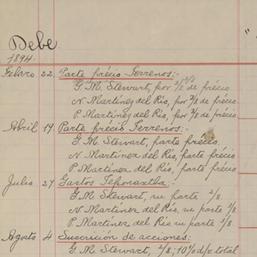 Debe
1894
Febro. 22. Parte précio Terrenos:-
G. M. Stewart, por 2/8 de précio
N. Martinez del Rio, por 3/8 de précio
P. Martinez del Rio, por 3/8 de précio
Abril 19. Parte précio Terrenos:-
G. M. Stewart, parte précio
N. Martinez del Rio, parte précio
P. Martinez del Rio, parte précio
Julio 27 Gastos Teponaxtla:-
G. M. Stewart, su parte 2/8
N. Martinez del Rio, su parte 3/8
P. Martinez del Rio su parte 3/8
Agosto 4 Suscrición de acciones:-
G. M. Stewart, 2/8, 10% d/o total